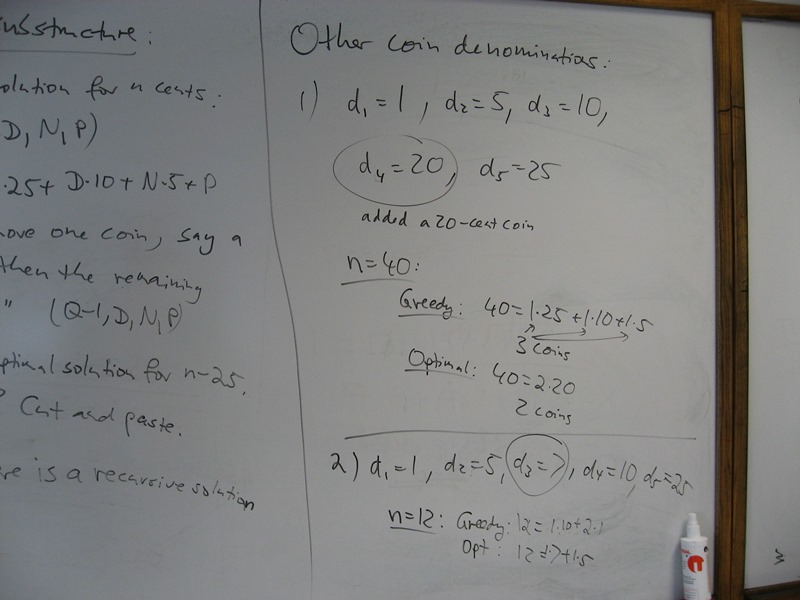 substructure:
solution for n cents:
D, N, P)
.25+ D·10+ N·5+P
one coin, say a
then the remaining
" (Q-1, D, N, P)
optimal solution for n-25.
? Cut and paste.
is a recursive solution
Other coin denominations:
1) d₁=1, d₂=5, d₃=10,
d₄=20, d₅=25
added a 20-cent coin
n=40:
Greedy: 40=1·25+1·10+1·5
3 coins
Optimal: 40=2·20
2 coins
2) d₁=1, d₂=5, d₃=7, d₄=10, d₅=25
n=12: Greedy: 12=1·10+2·1
Opt: 12=1·7+1·5